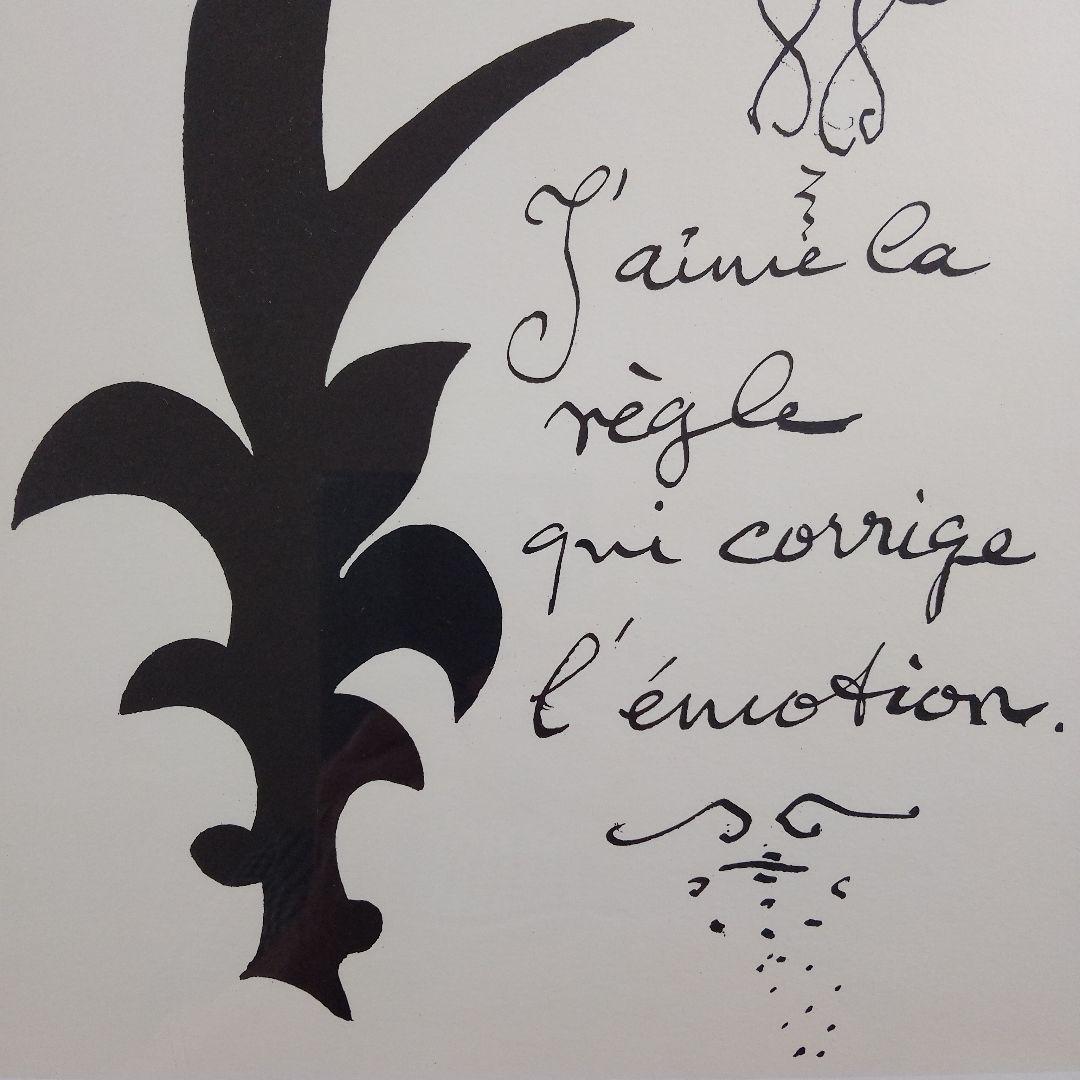 J'aime la
règle
qui corrige
l'émotion.